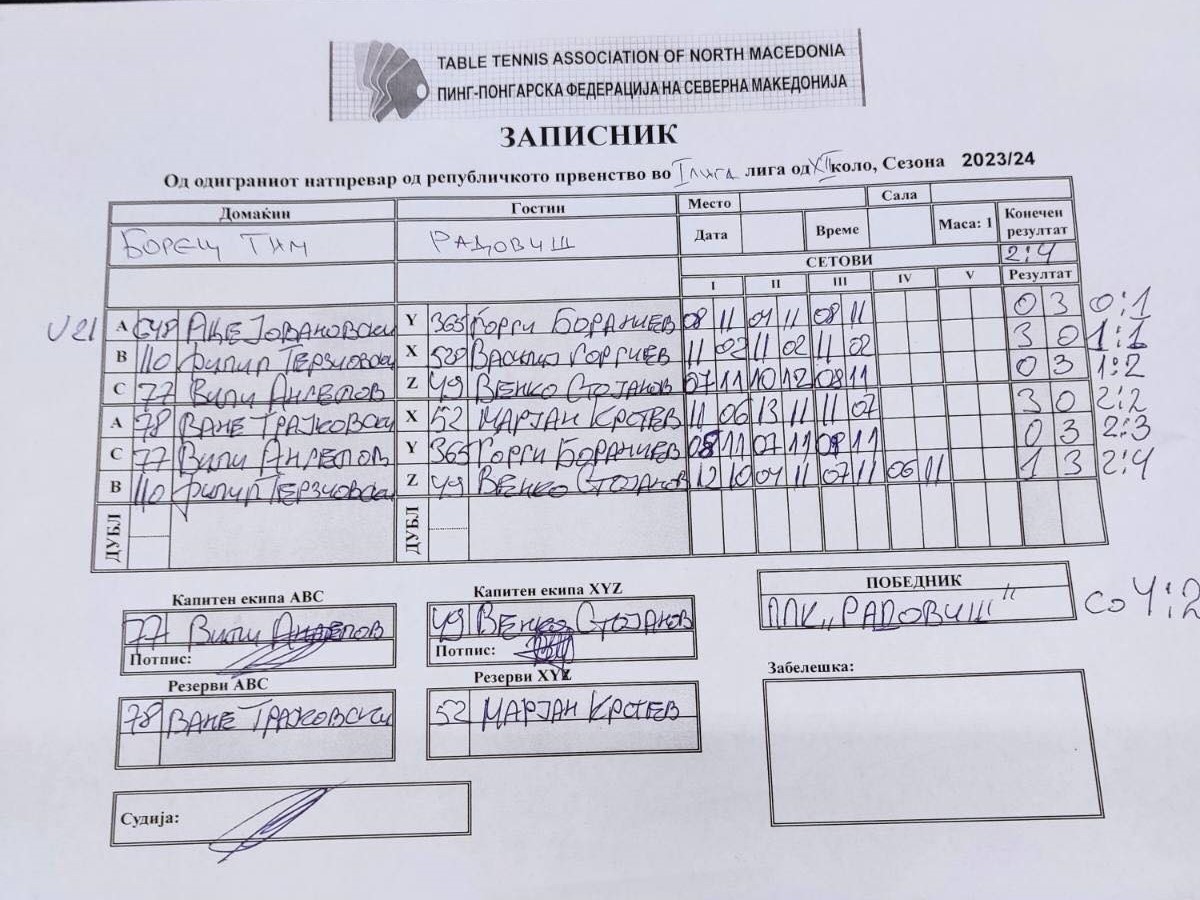 TABLE TENNIS ASSOCIATION OF NORTH MACEDONIA
ПИНГ-ПОНГАРСКА ФЕДЕРАЦИЈА НА СЕВЕРНА МАКЕДОНИЈА
ЗАПИСНИК
Од одиграниот натпревар од републичкото првенство во I лига лига од XII коло, Сезона 2023/24
Домаќин Гостин Место Сала
БОРЕЦ ТИМ РАДОВИШ Дата Време Маса: 1 Конечен резултат
СЕТОВИ 2:4
I II III IV V Резултат
U21 A 648 АЦЕ ЈОВАНОВСКИ Y 365 ЃОРГИ БОРАНИЕВ 08 11 04 11 08 11 0 3 0:1
B 110 ФИЛИП ТЕРЗИОВСКИ X 520 ВАСИЛИЈ ЃОРГИЕВ 11 02 11 02 11 02 3 0 1:1
C 77 ВИЛИ АНГЕЛОВ Z 49 ВЕНКО СТОЈАНОВ 07 11 10 12 08 11 0 3 1:2
A 78 ВАНЕ ТРАЈКОВСКИ X 52 МАРЈАН КРСТЕВ 11 06 13 11 11 07 3 0 2:2
C 77 ВИЛИ АНГЕЛОВ Y 365 ЃОРГИ БОРАНИЕВ 08 11 07 11 09 11 0 3 2:3
B 110 ФИЛИП ТЕРЗИОВСКИ Z 49 ВЕНКО СТОЈАНОВ 12 10 04 11 07 11 06 11 1 3 2:4
ДУБЛ ДУБЛ
Капитен екипа ABC Капитен екипа XYZ ПОБЕДНИК
77 ВИЛИ АНГЕЛОВ 49 ВЕНКО СТОЈАНОВ ППК „РАДОВИШ" СО 4:2
Потпис: Потпис:
Резерви ABC Резерви XYZ Забелешка:
78 ВАНЕ ТРАЈКОВСКИ 52 МАРЈАН КРСТЕВ
Судија: